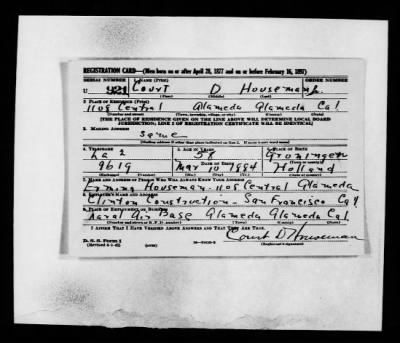 REGISTRATION CARD—(Men born on or after April 28, 1877 and on or before February 16, 1897)
SERIAL NUMBER 1. NAME (Print) ORDER NUMBER
U 921 Court D Houseman
(First) (Middle) (Last)
2. PLACE OF RESIDENCE (Print)
1108 Central Alameda Alameda Cal
(Number and street) (Town, township, village, or city) (County) (State)
[THE PLACE OF RESIDENCE GIVEN ON THE LINE ABOVE WILL DETERMINE LOCAL BOARD
JURISDICTION; LINE 2 OF REGISTRATION CERTIFICATE WILL BE IDENTICAL]
3. MAILING ADDRESS
same
[Mailing address if other than place indicated on line 2. If same insert word same]
4. TELEPHONE 5. AGE IN YEARS 6. PLACE OF BIRTH
La 2 58 Groningen
DATE OF BIRTH
9619 Mar 10 1884 Holland
(Exchange) (Number) (Mo.) (Day) (Yr.) (State or country)
7. NAME AND ADDRESS OF PERSON WHO WILL ALWAYS KNOW YOUR ADDRESS
Houseman - 1108 Central Alameda
8. EMPLOYER'S NAME AND ADDRESS
Clinton Construction - San Francisco Cal
9. PLACE OF EMPLOYMENT OR BUSINESS
Naval Air Base Alameda Alameda Cal
(Number and street or R. F. D. number) (Town) (County) (State)
I AFFIRM THAT I HAVE VERIFIED ABOVE ANSWERS AND THAT THEY ARE TRUE.
Court D Houseman
D. S. S. Form 1
(Revised 4-1-42) (over) (Registrant's signature)